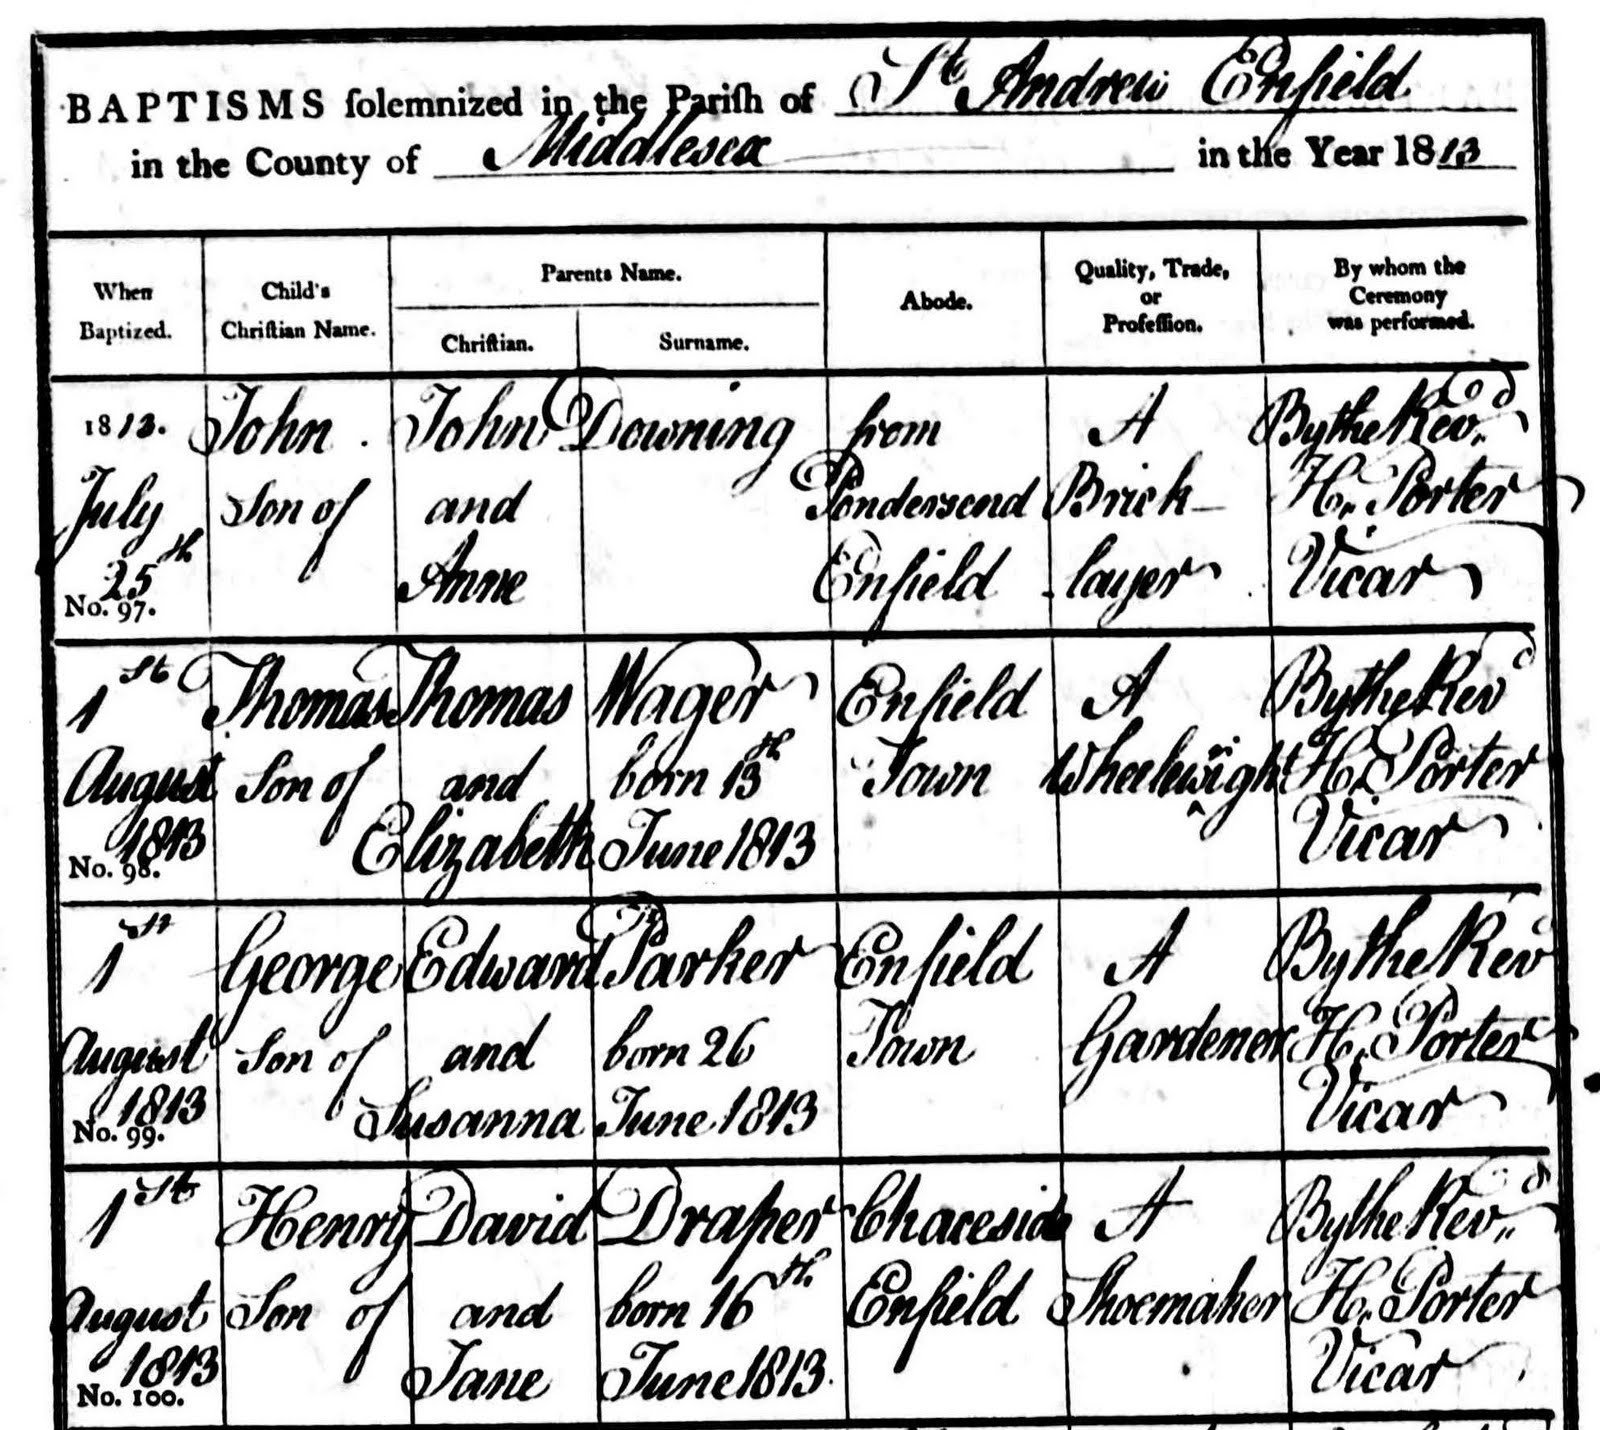 BAPTISMS ſolemnized in the Pariſh of St. Andrew Enfield
in the County of Middlesex in the Year 1813
When Baptized.
Child's Chriſtian Name.
Parents Name.
Chriſtian.
Surname.
Abode.
Quality, Trade, or Profeſſion.
By whom the Ceremony was performed.
1813. John John Downing from A By the Revd.
July Son of and Pondersend Brick- H. Porter
25th Anne Enfield layer Vicar
No. 97.
1st Thomas Thomas Wager Enfield A By the Revd
August Son of and born 13th Town Wheelwright H. Porter
1813 Elizabeth June 1813 Vicar
No. 98.
1st George Edward Parker Enfield A By the Rev
August Son of and born 26 Town Gardener H. Porter
1813 Susanna June 1813 Vicar
No. 99.
1st Henry David Draper Chaceside A By the Revd.
August Son of and born 16th Enfield Shoemaker H. Porter
1813 Jane June 1813. Vicar
No. 100.